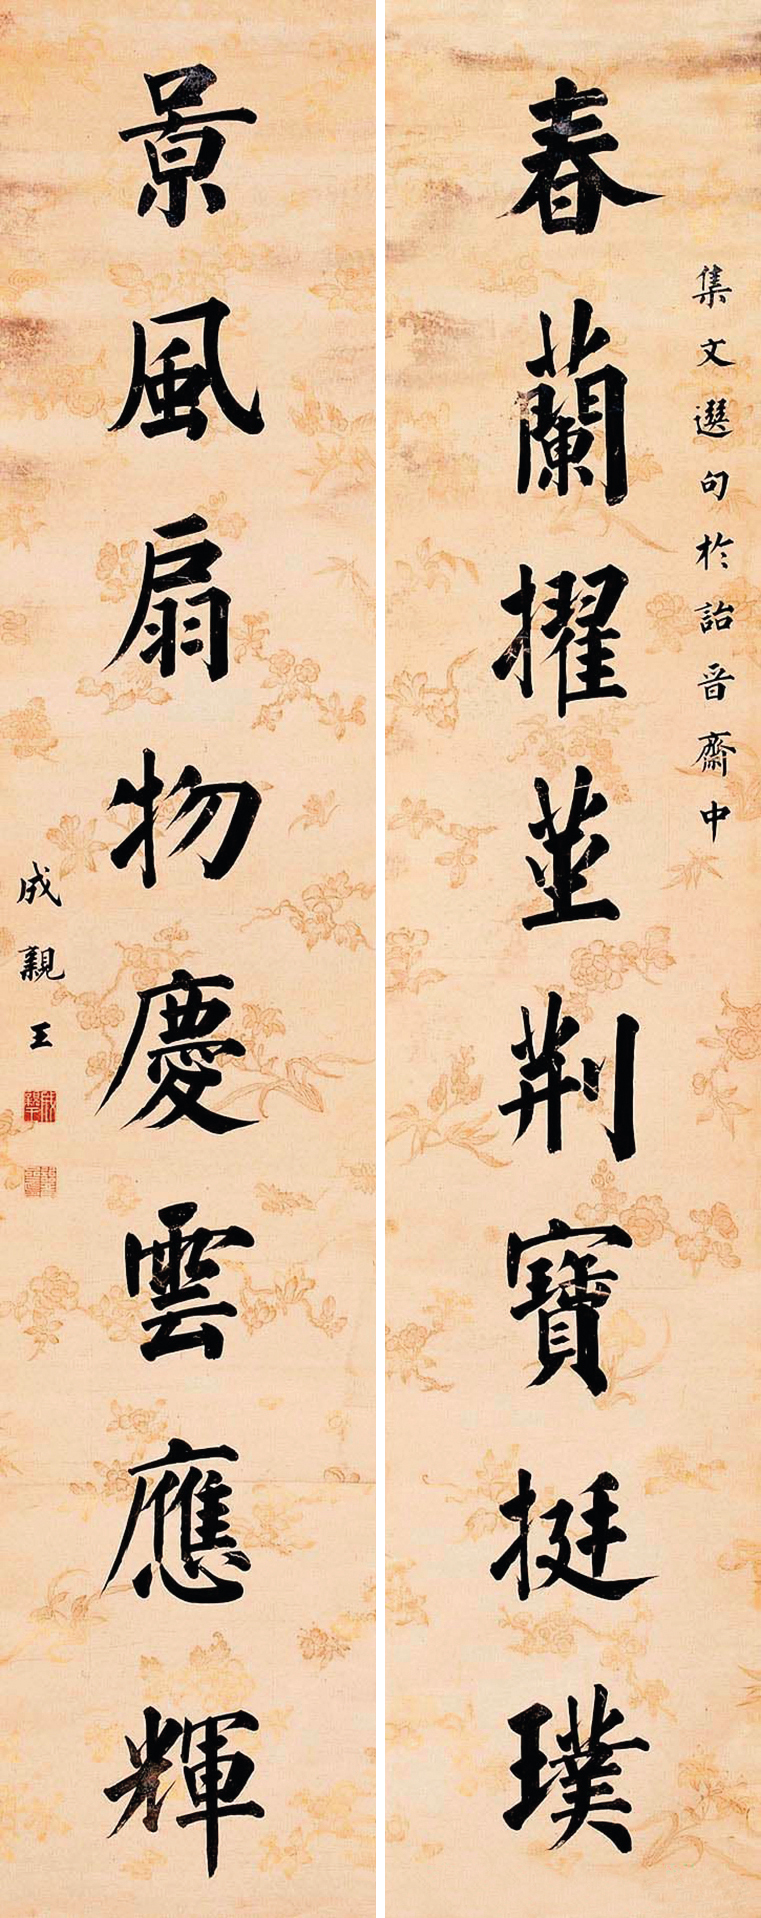 集文選句於詒晋齋中
春蘭擢莖荊寶挺璞
景風扇物慶雲應輝
成親王